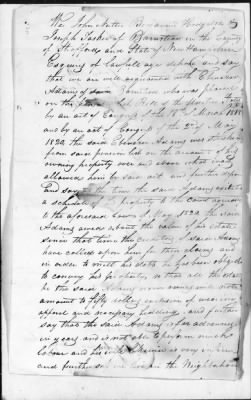 We John Nutter Benjamin
Joseph Tasker of Barnstead in the County
of Strafford and State of New Hampshire
Esquires of lawful age depose and say
that we are well acquainted with Ebenezer
Adams of said Barnstead who was placed
on the Pension List Roll of the United States
by an act of Congress the 18th March 1818
and by an act of Congress the 2d of May
1820 the said Ebenezer Adams was stricken
from said pension Roll on the account of his
owning property over and above what was
allowed him by said act and further depose
and say that the time the said Adams exhibited
a schedule of his property to the Court agreeable
to the aforesaid law of May 1820 the said
Adams owed about the value of his estate
since that time the creditors of said Adams
have called upon him for their claims and
in order to meet his debts he has been obliged
to convey his property, so that all the estate
he the said Adams now owns will not
amount to fifty dollars exclusive of wearing
apparel and necessary bedding, and further
say that the said Adams is far advanced
in years and is not able to perform much
labour and his wife is very infirm
and further say we live in the Neighborhood